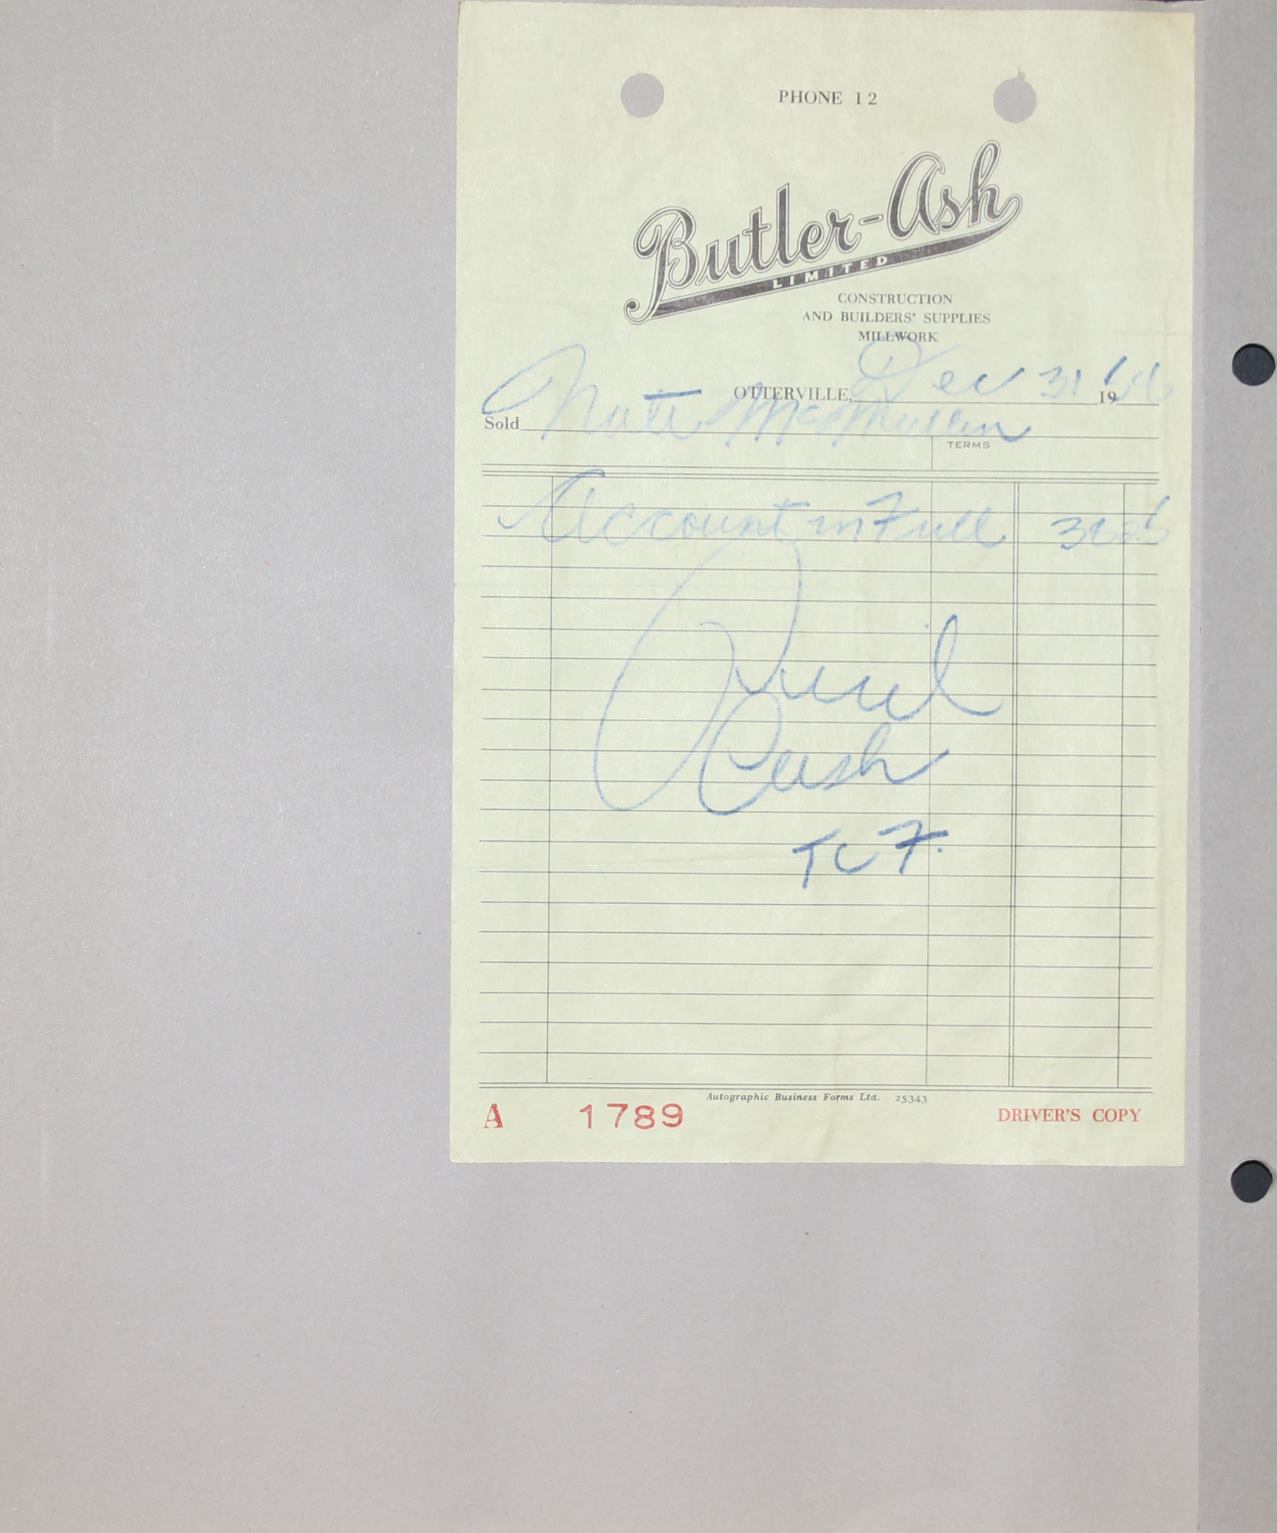 PHONE 12
Butler-Ash
LIMITED
CONSTRUCTION
AND BUILDERS' SUPPLIES
MILLWORK
OTTERVILLE, Dec 31 1956
Sold Nate McMullen
TERMS
Account in Full
Paid
Cash
TCF.
Autographic Business Forms Ltd. 25343
A 1789 DRIVER'S COPY